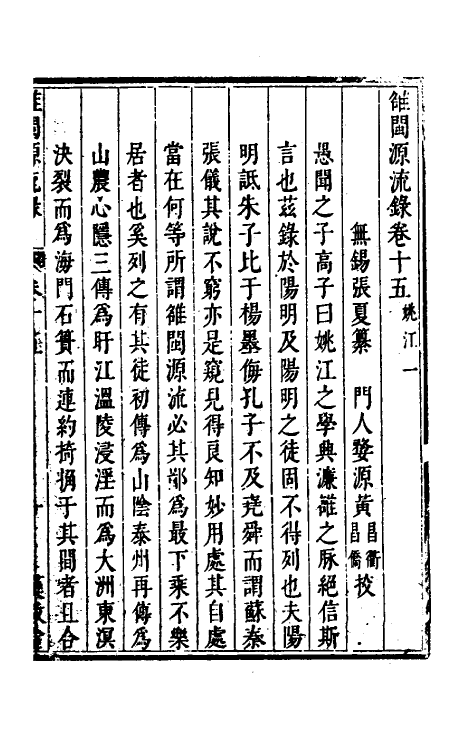 雒閩源流錄卷十五姚江一
無錫張夏纂 門人婺源黃昌衢昌僑校
愚聞之子高子曰姚江之學興濂雒之脉絕信斯
言也茲錄於陽明及陽明之徒固不得列也夫陽
明詆朱子比于楊墨侮孔子不及堯舜而謂蘇秦
張儀其說不窮亦是窺見得良知妙用處其自處
當在何等所謂雒閩源流必其鄙為最下乘不樂
居者也奚列之有其徒初傳為山陰泰州再傳為
山農心隱三傳為盱江溫陵浸淫而為大洲東溟
決裂而為海門石簣而連約掎㧖于其間者且合
雒閩源流錄 卷十五